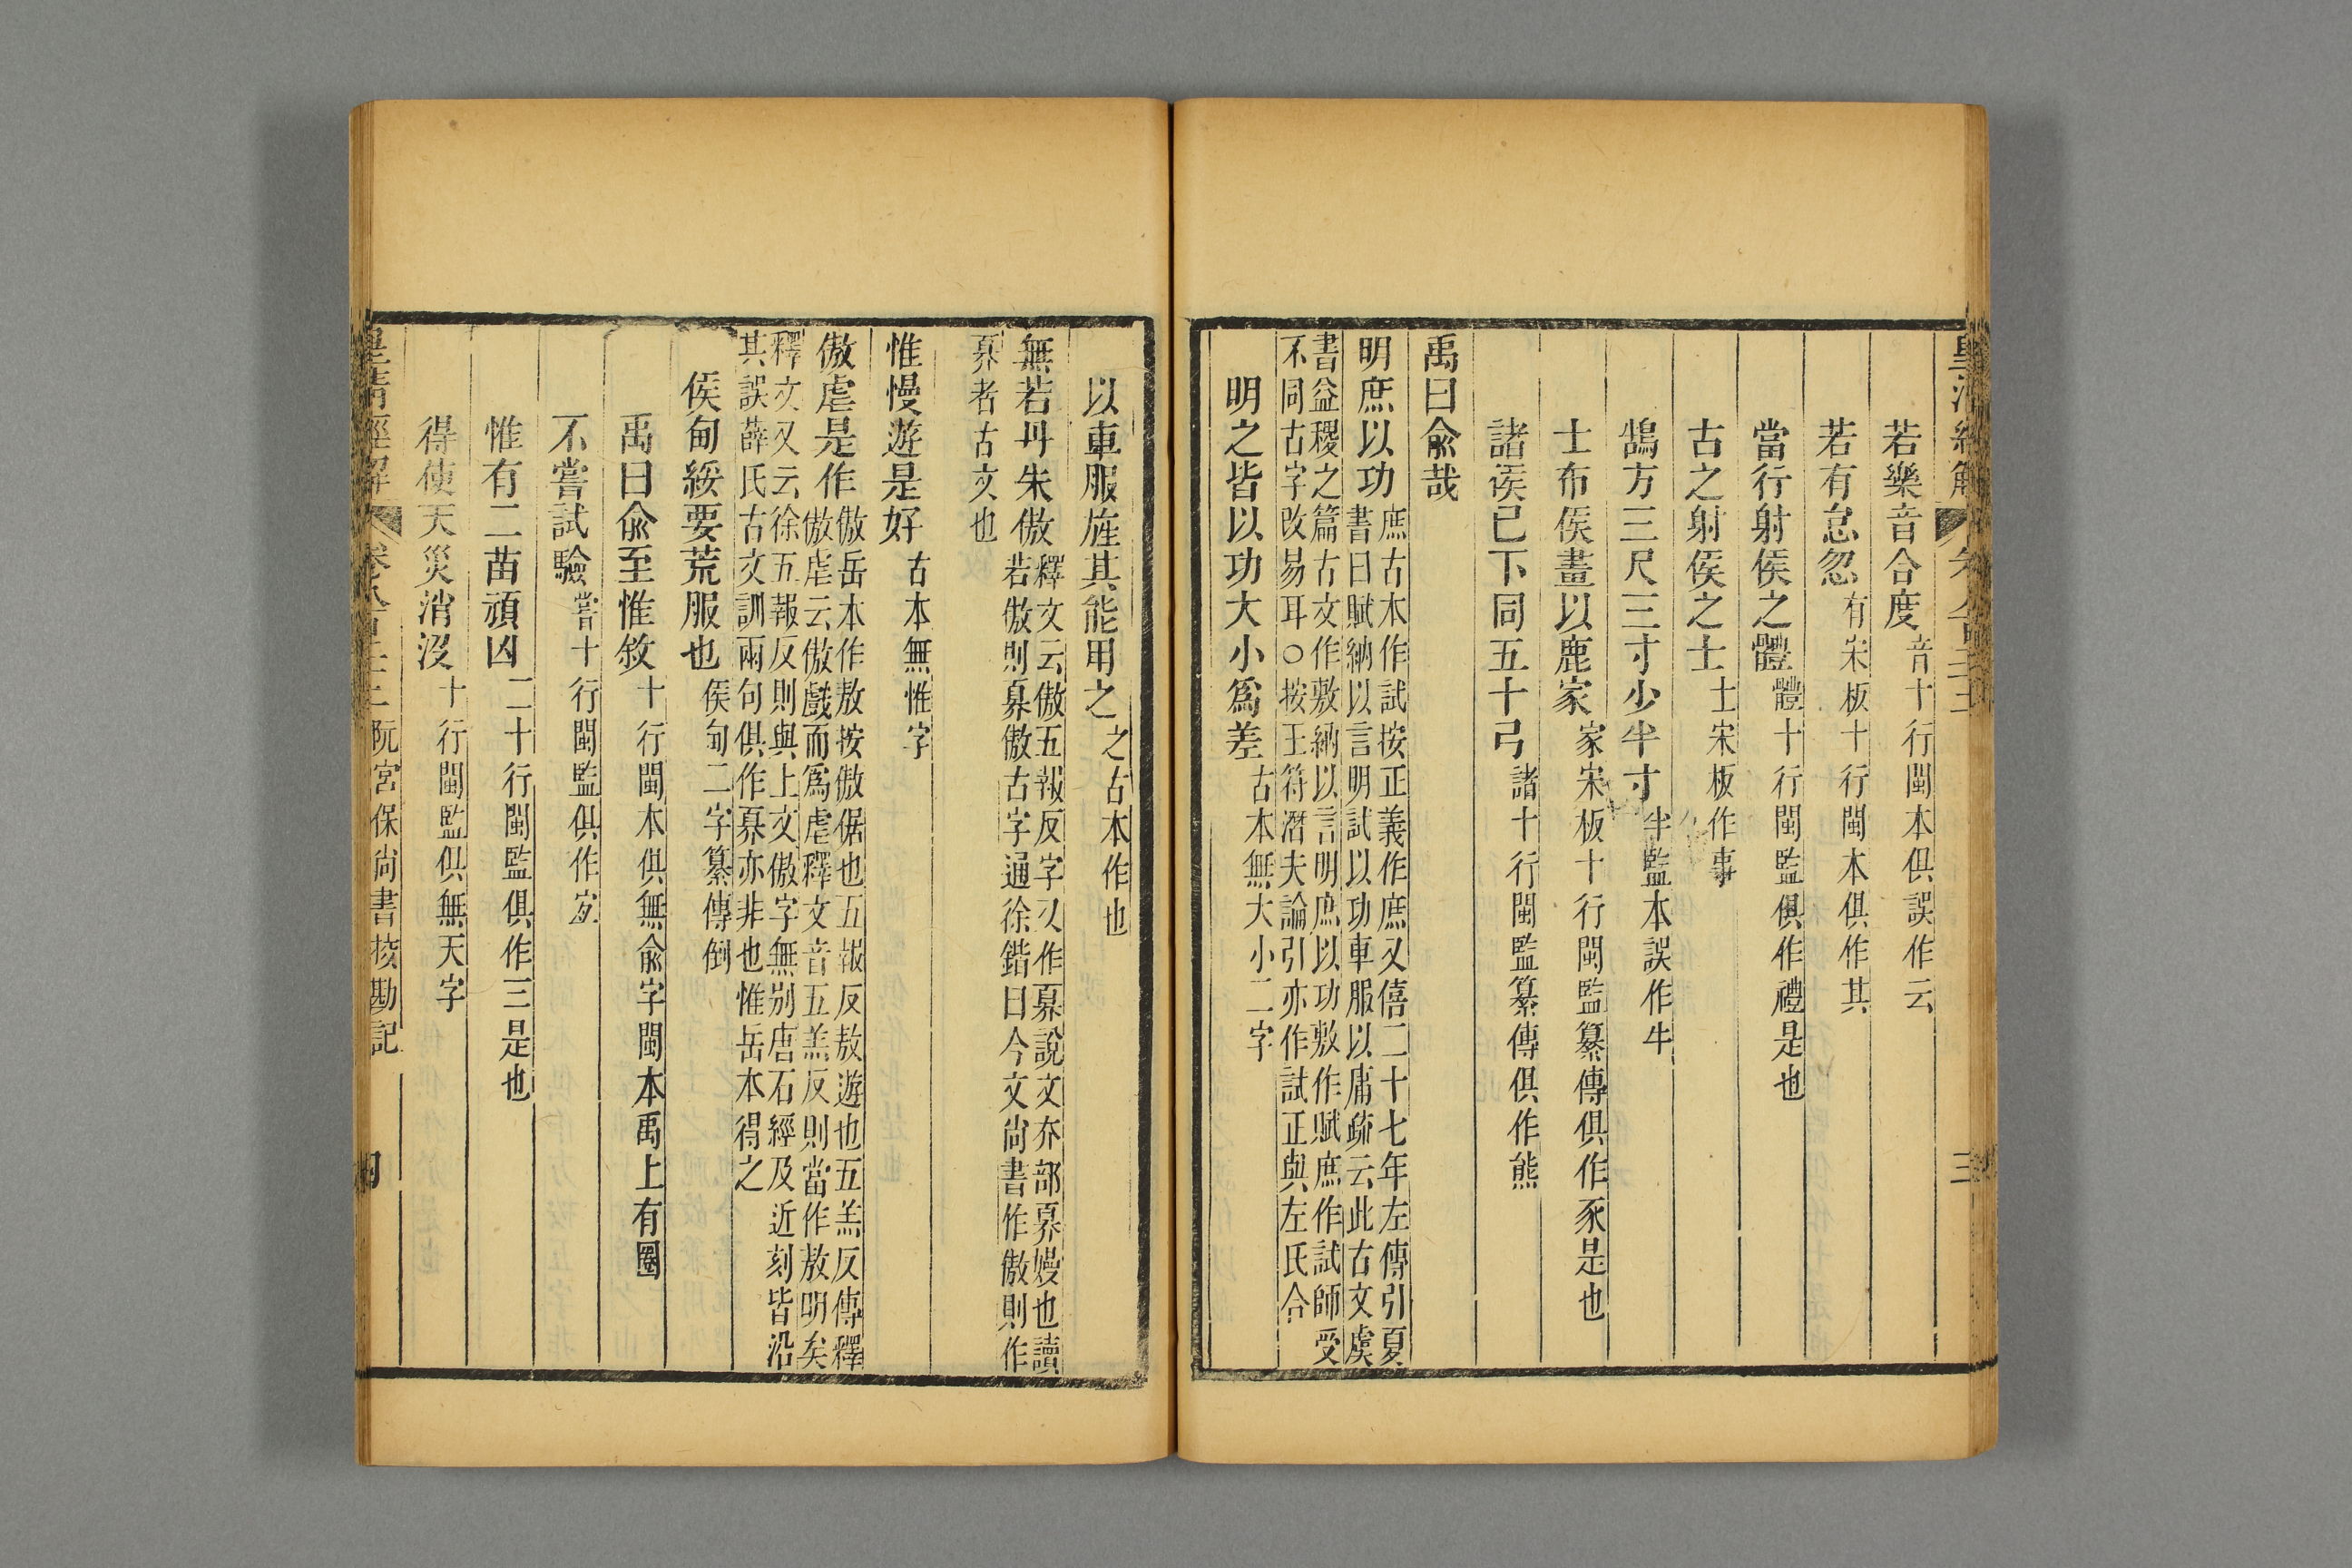 若樂音合度音十行閩本俱誤作云
若有怠忽有宋板十行閩本俱作其
當行射侯之體體十行閩監俱作禮是也
古之射侯之士士宋板作事
鵠方三尺三寸少半寸半監本誤作牛
士布侯畫以鹿豕家宋板十行閩監纂傳俱作豕是也
諸侯已下同五十弓諸十行閩監纂傳俱作熊
禹曰俞哉
明庶以功庶古本作試按正義作庶又僖二十七年左傳引夏
書曰賦納以言明試以功車服以庸疏云此古文虞
書益稷之篇古文作敷納以言明庶以功敷作賦庶作試師受
不同古字改易耳○按王符潛夫論引亦作試正與左氏合
明之皆以功大小爲差古本無大小二字
以車服旌其能用之之古本作也
無若丹朱傲釋文云傲五報反字又作奡說文夰部奡嫚也讀
若傲則奡傲古字通徐鍇曰今文尙書作傲則作
奡者古文也
惟慢遊是好古本無惟字
傲虐是作傲岳本作敖按傲倨也五報反敖遊也五羔反傳釋
傲虐云傲戲而爲虐釋文音五羔反則當作敖明矣
釋文又云徐五報反則與上文傲字無別唐石經及近刻皆沿
其誤薛氏古文訓兩句俱作奡亦非也惟岳本得之
侯甸綏要荒服也侯甸二字纂傳倒
禹曰俞至惟敘十行閩本俱無俞字閩本禹上有圈
不嘗試驗嘗十行閩監俱作㝍
惟有二苗頑凶二十行閩監俱作三是也
得使天災消沒十行閩監俱無天字
皇淸經解 阮宮保尙書挍勘記